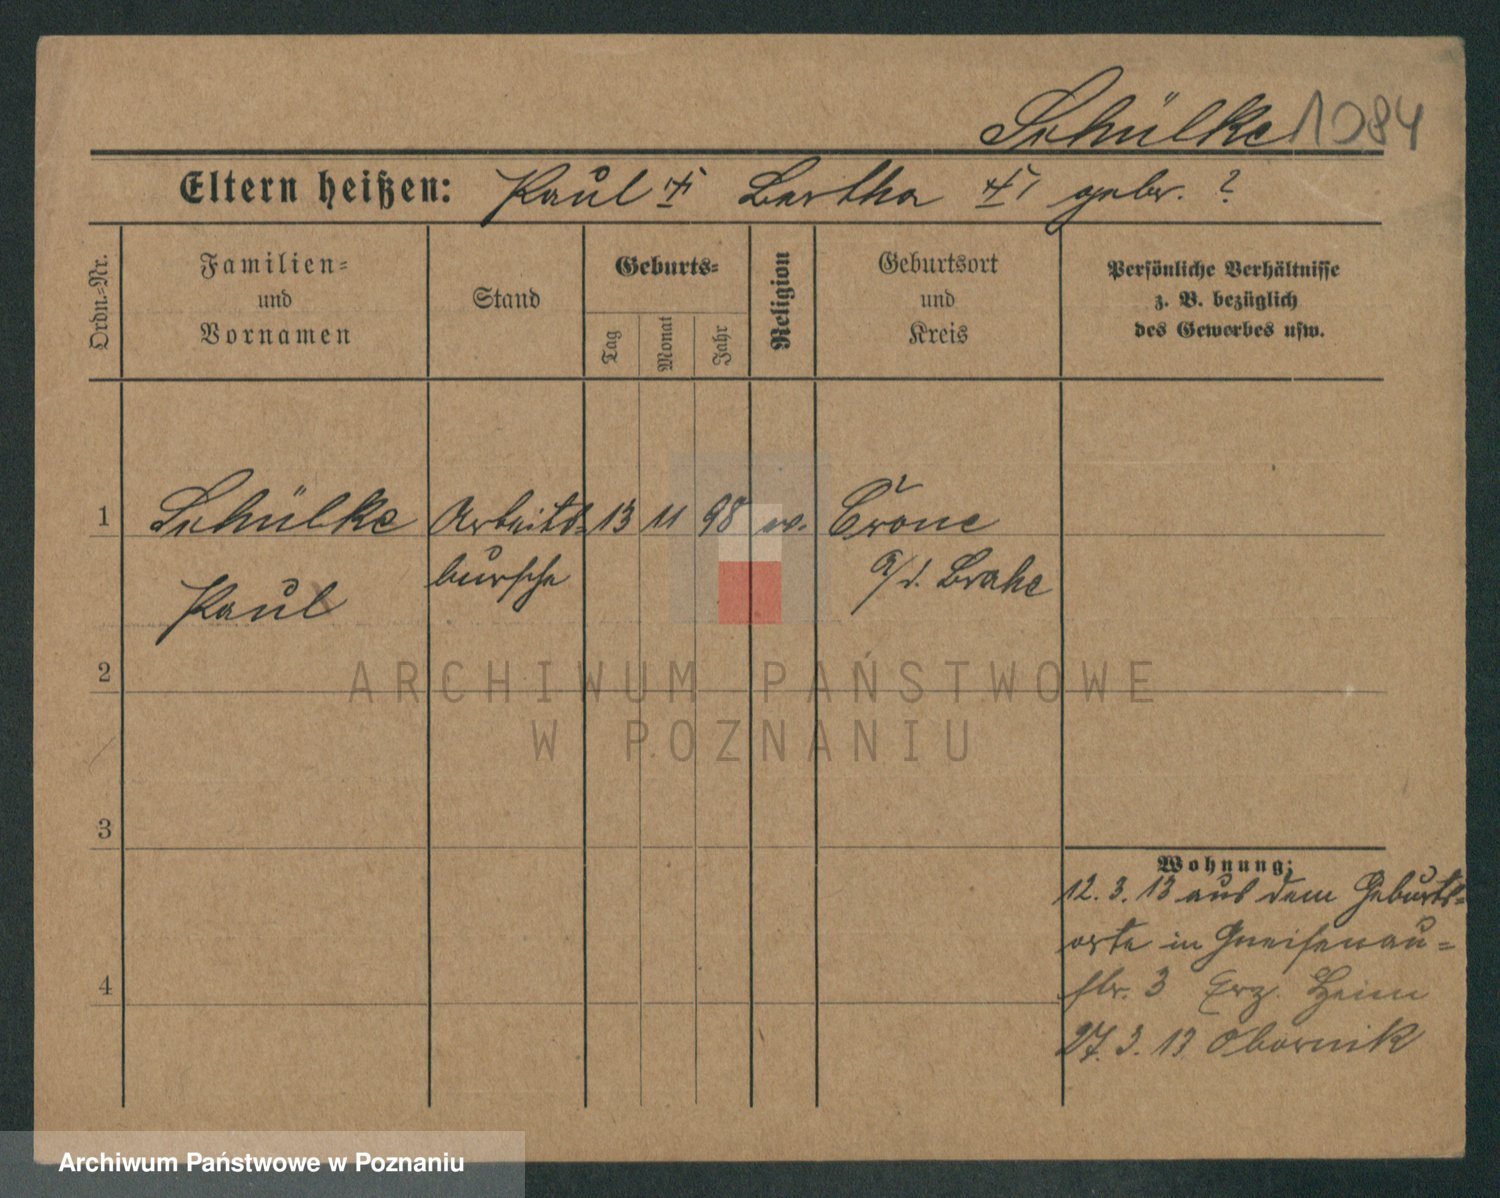 Schülke 1084
Eltern heißen: Paul † Bertha † gebr. ?
Ordn.=Nr.
Familien=
und
Vornamen
Stand
Geburts=
Tag
Monat
Jahr
Religion
Geburtsort
und
Kreis
Persönliche Verhältnisse
z. B. bezüglich
des Gewerbes usw.
1 Schülke Arbeits= 13 11 98 ev. Crone
Paul bursche a/d. Brahe
2
ARCHIWUM PAŃSTWOWE
W POZNANIU
3
Wohnung:
12. 3. 13 aus dem Geburts=
orte in Gneisenau=
str. 3 Erz. Heim
4
27. 3. 13 Obornik
Archiwum Państwowe w Poznaniu